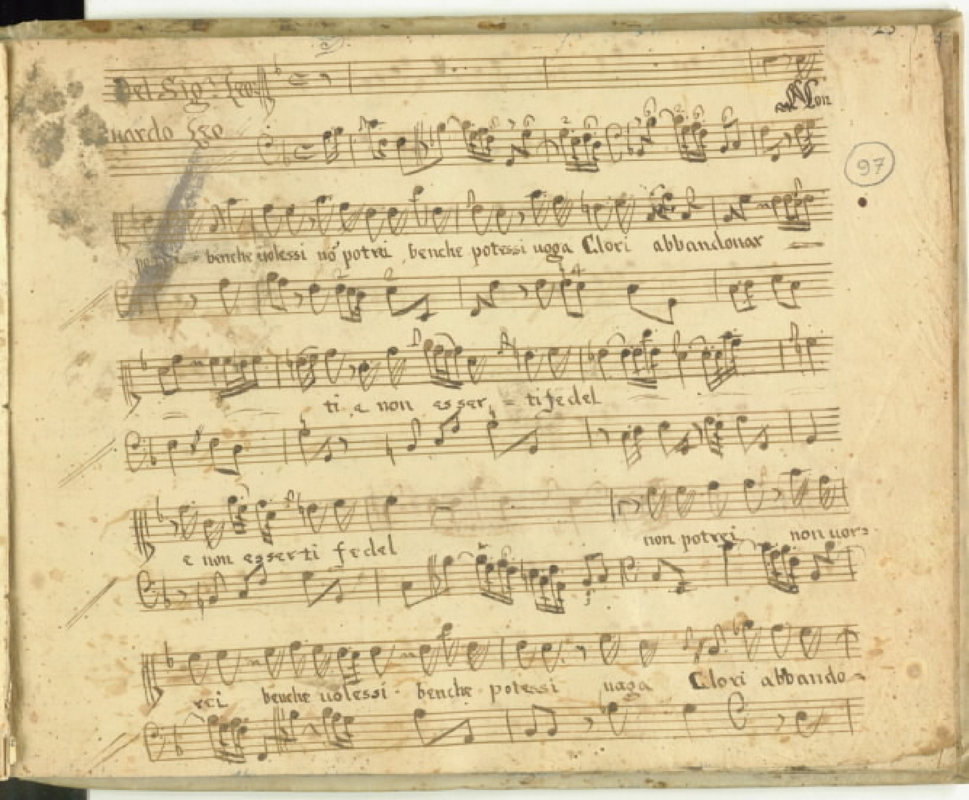 Del Sig.r Leo=
nardo Leo
Non
97
benche volessi nõ potrei, benche potessi vaga Clori abbandonar
ti e non esser = ti fedel
e non esserti fedel non potrei non vor=
rei benche volessi - benche potessi vaga Clori abbando=